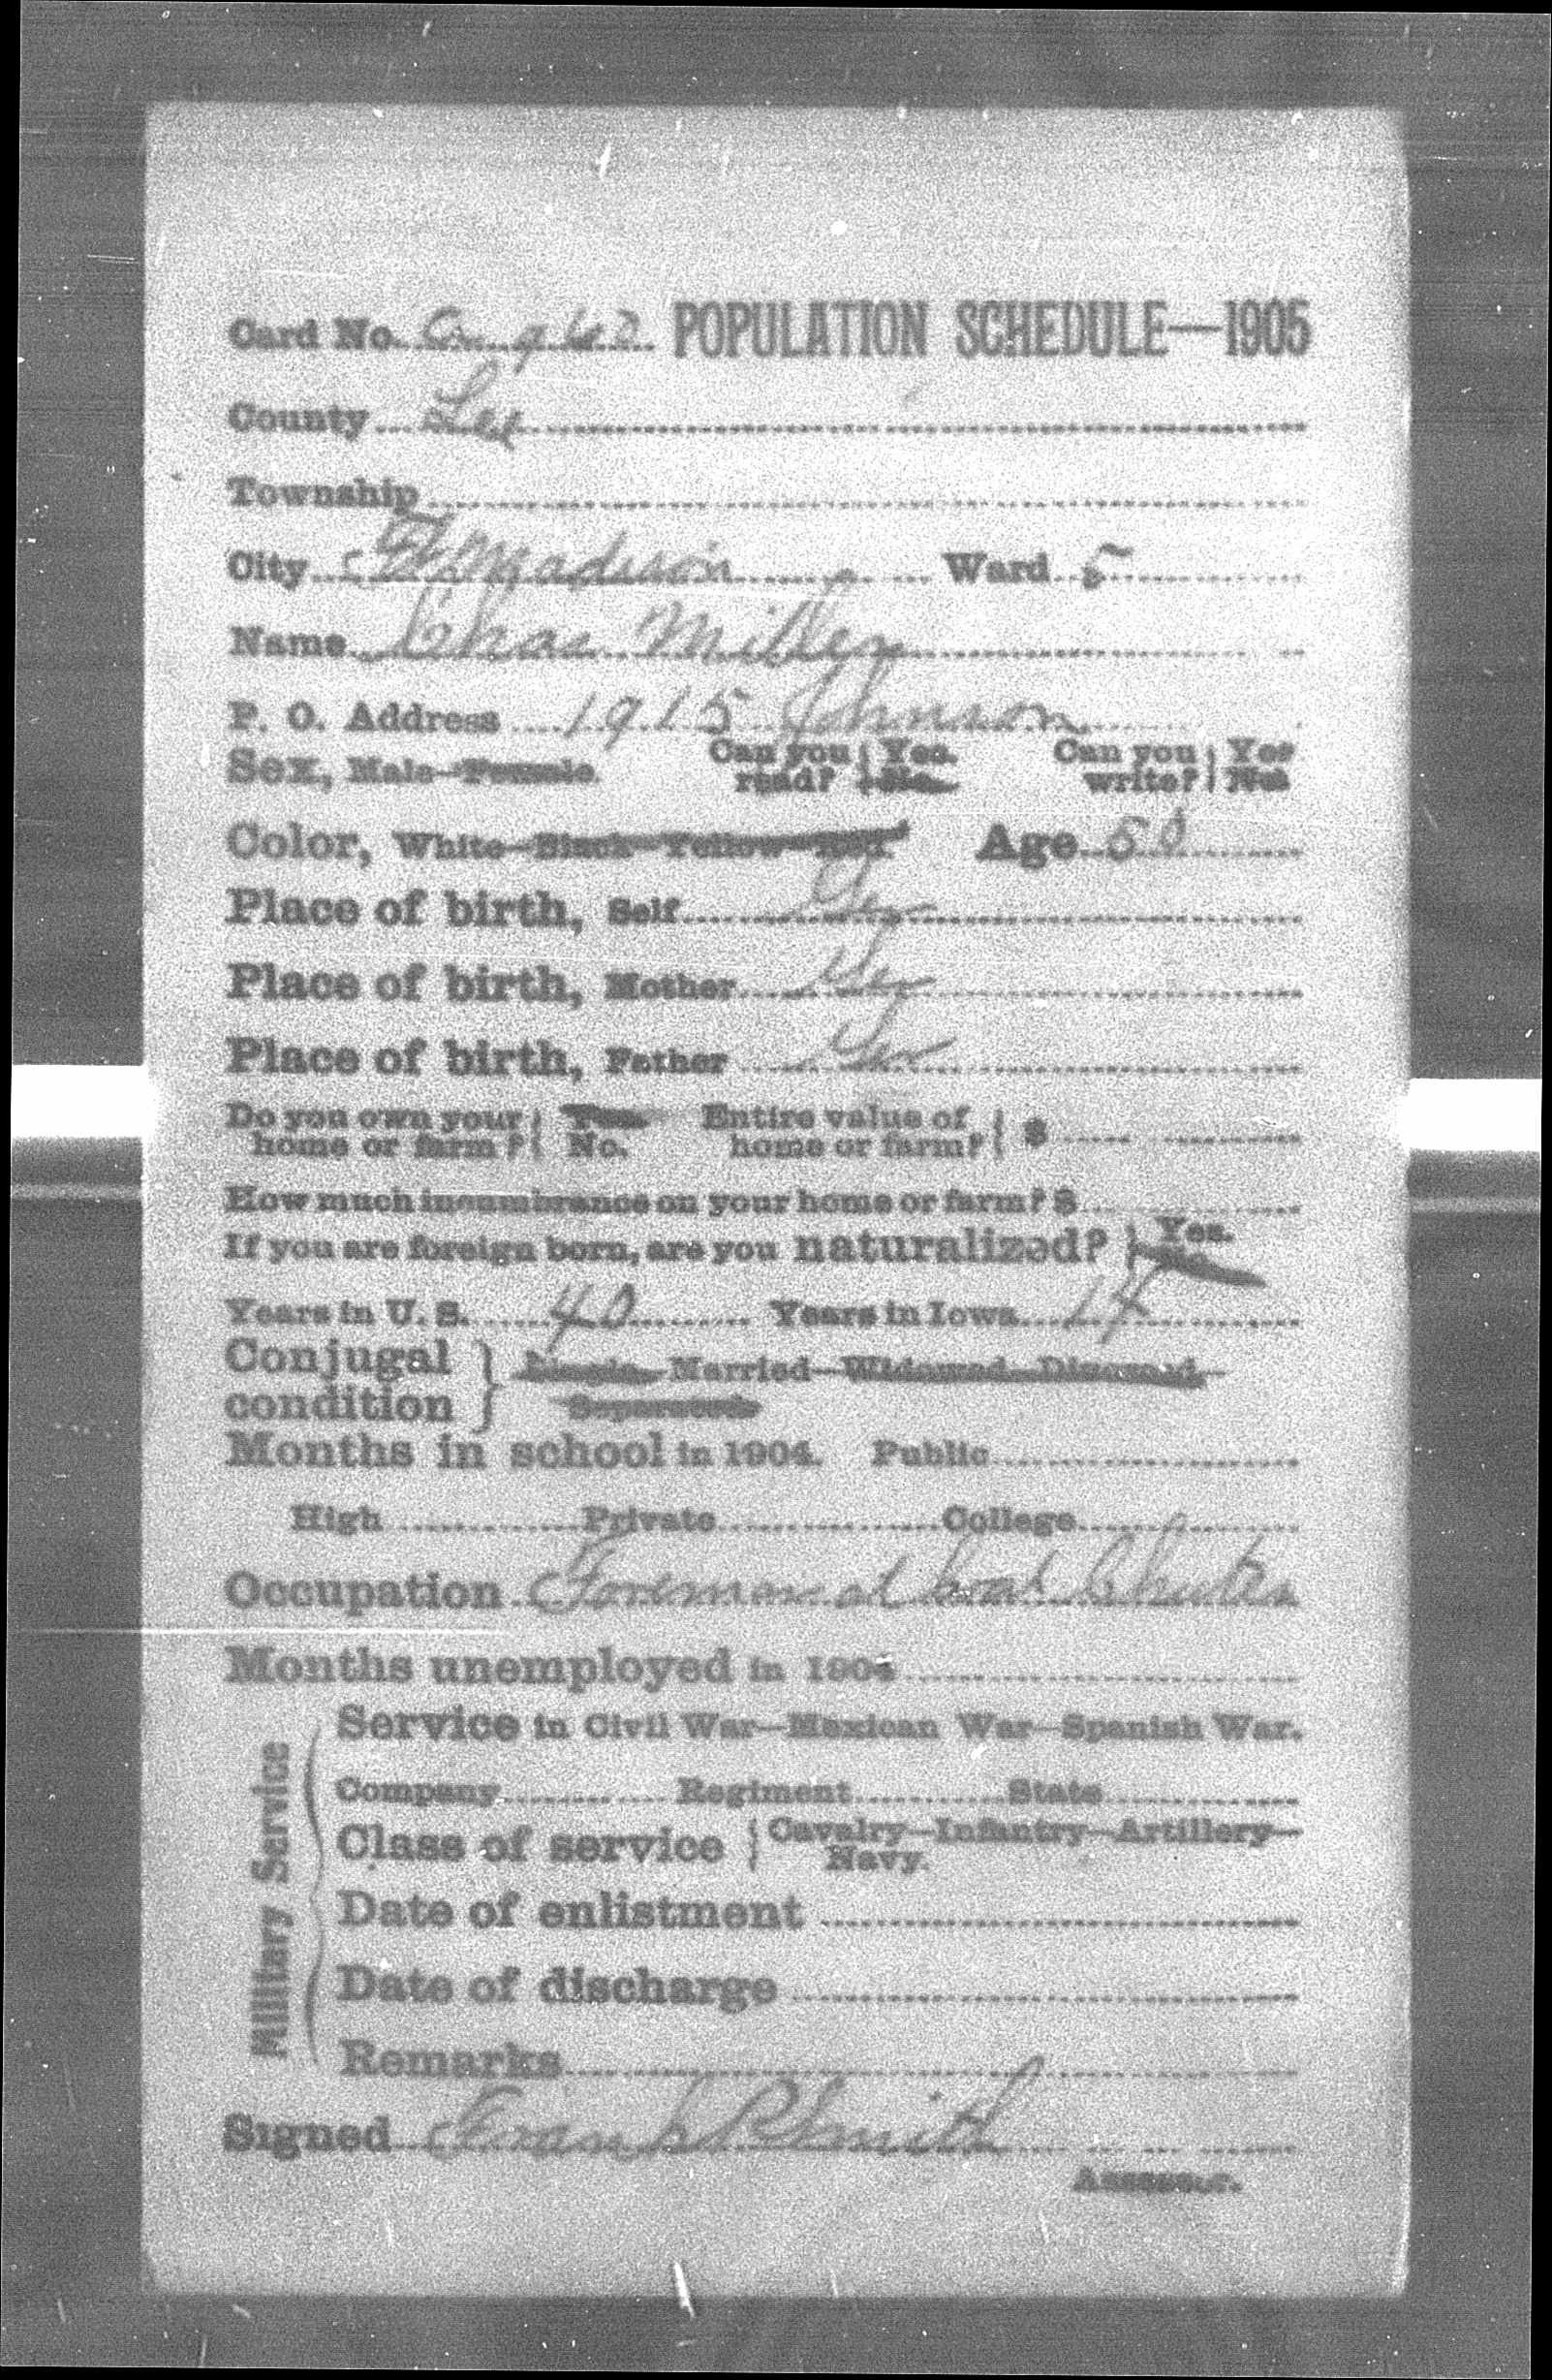 Card No. POPULATION SCHEDULE—1905
County Lee
Township
City Ft Madison Ward 5
Name Chas Miller
P. O. Address 1915 Johnson
Sex, Male—Female. Can you read? Yes. No. Can you write? Yes No
Color, White—Black—Yellow—Red. Age 50
Place of birth, Self Ger
Place of birth, Mother Ger
Place of birth, Father Ger
Do you own your home or farm? Yes No. Entire value of home or farm? $
How much incumbrance on your home or farm? $
If you are foreign born, are you naturalized? Yes. No.
Years in U. S. 40 Years in Iowa 14
Conjugal condition Single—Married—Widowed—Divorced—
Separated
Months in school in 1904. Public
High Private College
Occupation Foreman at Coal Chutes
Months unemployed in 1904
Military Service
Service in Civil War—Mexican War—Spanish War.
Company Regiment State
Class of service Cavalry—Infantry—Artillery—
Navy.
Date of enlistment
Date of discharge
Remarks
Signed Frank P Smith
Assessor.